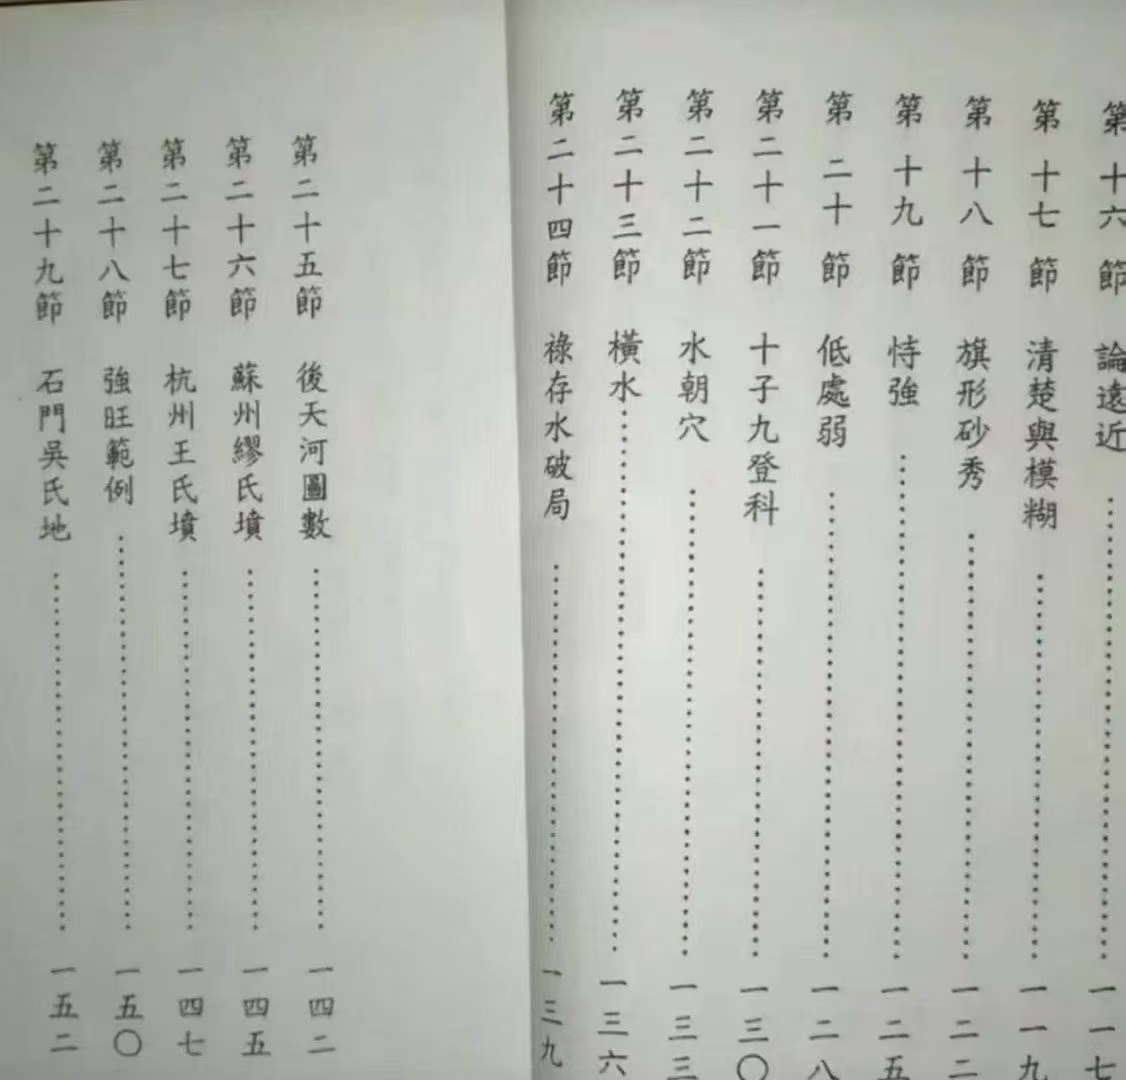 第十六節　論遠近……一一七
第十七節　清楚與模糊……一一九
第十八節　旗形砂秀……一二二
第十九節　恃強……一二五
第二十節　低處弱……一二八
第二十一節　十子九登科……一三〇
第二十二節　水朝穴……一三三
第二十三節　橫水……一三六
第二十四節　祿存水破局……一三九
第二十五節　後天河圖數……一四二
第二十六節　蘇州繆氏墳……一四五
第二十七節　杭州王氏墳……一四七
第二十八節　強旺範例……一五〇
第二十九節　石門吳氏地……一五二